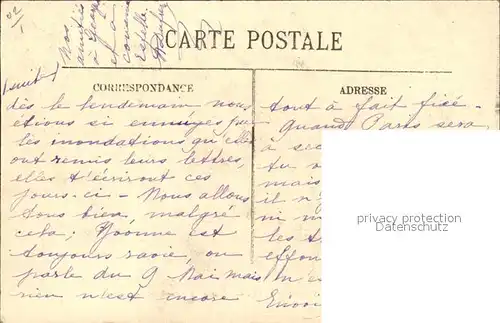 Nos
amitiés
à
CARTE POSTALE
(suite)
CORRESPONDANCE
dès le lendemain nous
étions si ennuyés par
les inondations qu'elles
ont remis leurs lettres,
elles t'écriront ces
jours-ci - Nous allons
tous bien, malgré
cela; Yvonne est
toujours ravie, on
parle du 9 Mai mais
rien n'est encore
ADRESSE
tout à fait fixé -
Quand Paris sera
à
tu
mais
il n'
ni
les
n'e
Envoi
privacy protection
Datenschutz